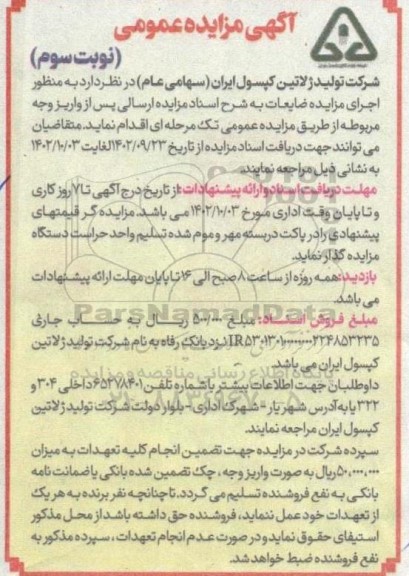 آگهی مزایده عمومی
(نوبت سوم)
شرکت تولید ژلاتین کپسول ایران (سهامی عام) در نظر دارد به منظور
اجرای مزایده ضایعات به شرح اسناد مزایده ارسالی پس از واریز وجه
مربوطه از طریق مزایده عمومی تک مرحله ای اقدام نماید. متقاضیان
می توانند جهت دریافت اسناد مزایده از تاریخ ۱۴۰۲/۰۹/۲۳ لغایت ۱۴۰۲/۱۰/۰۳
به نشانی ذیل مراجعه نمایند.
مهلت دریافت اسناد و ارائه پیشنهادات: از تاریخ درج آگهی تا ۷ روز کاری
و تا پایان وقت اداری مورخ ۱۴۰۲/۱۰/۰۳ می باشد. مزایده گر قیمتهای
پیشنهادی را در پاکت دربسته مهر و موم شده تسلیم واحد حراست دستگاه
مزایده گذار نماید.
بازدید: همه روزه از ساعت ۸ صبح الی ۱۶ تا پایان مهلت ارائه پیشنهادات
می باشد.
ParsNamadData
مبلغ فروش اسناد: مبلغ ۵۰۰/۰۰۰ ریال به حساب جاری
نزد بانک رفاه به نام شرکت تولید ژلاتین
کپسول ایران می باشد.
پایگاه اطلاع رسانی مناقصه و مزایده
داوطلبان جهت اطلاعات بیشتر با شماره تلفن ۶۵۲۷۸۴۰۱ داخلی ۳۰۴ و
۳۲۲ یا به آدرس شهریار - شهرک اداری - بلوار دولت شرکت تولید ژلاتین
کپسول ایران مراجعه نمایند.
سپرده شرکت در مزایده جهت تضمین انجام کلیه تعهدات به میزان
۵۰,۰۰۰,۰۰۰ ریال به صورت واریز وجه، چک تضمین شده بانکی یا ضمانت نامه
بانکی به نفع فروشنده تسلیم می گردد. تا چنانچه نفر برنده به هر یک
از تعهدات خود عمل ننماید، فروشنده حق داشته باشد از محل مذکور
استیفای حقوق نماید و در صورت عدم انجام تعهدات، سپرده مذکور به
نفع فروشنده ضبط خواهد شد.